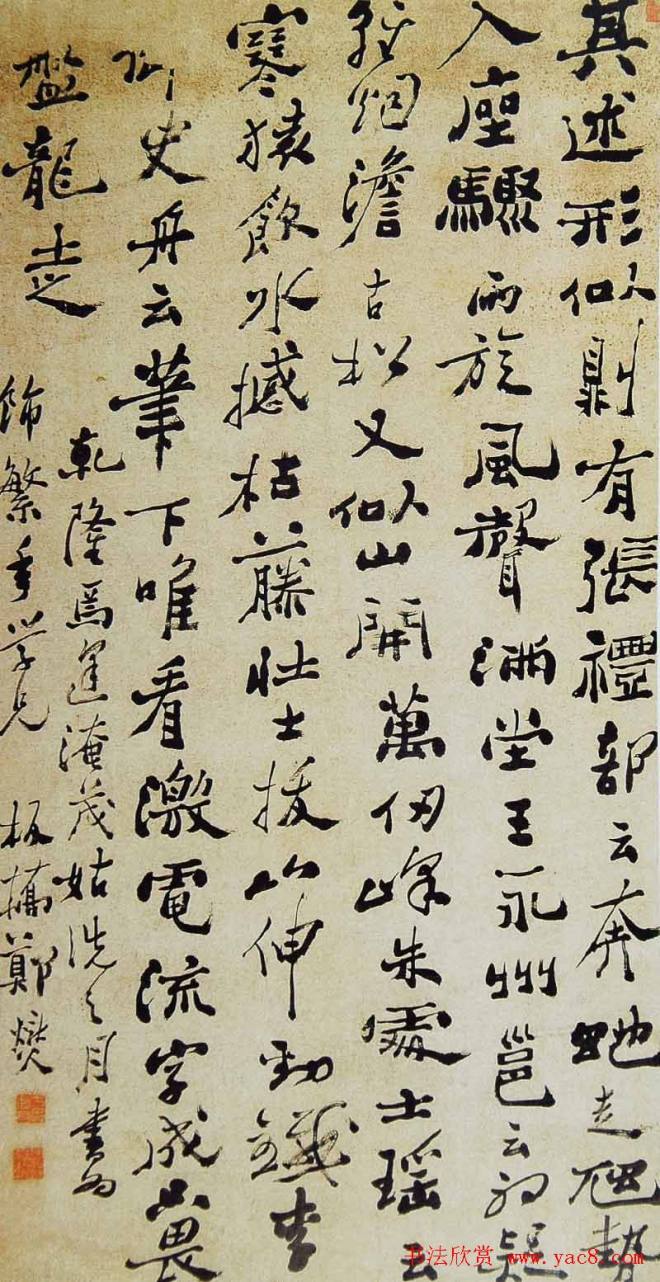 其述形似則有張禮部云奔虵走虺勢
入座驟雨旋風聲滿堂王永州邕云初疑
輕烟澹古松又似山開萬仞峰朱處士瑶云
寒猿飲水撼枯藤壯士拔山伸勁鐵李
御史舟云筆下唯看激電流字成只畏
盤龍走
乾隆焉逢淹茂姑洗之月書為
飾繁年學兄 板橋鄭燮
书法欣赏 www.yac8.com